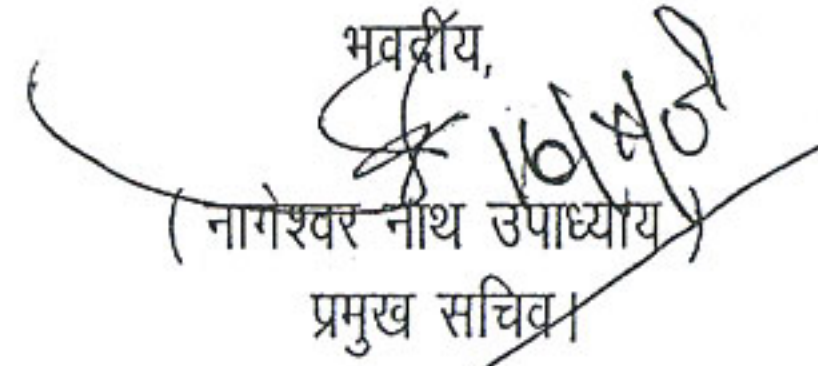 भवदीय,
( नागेश्वर नाथ उपाध्याय )
प्रमुख सचिव।